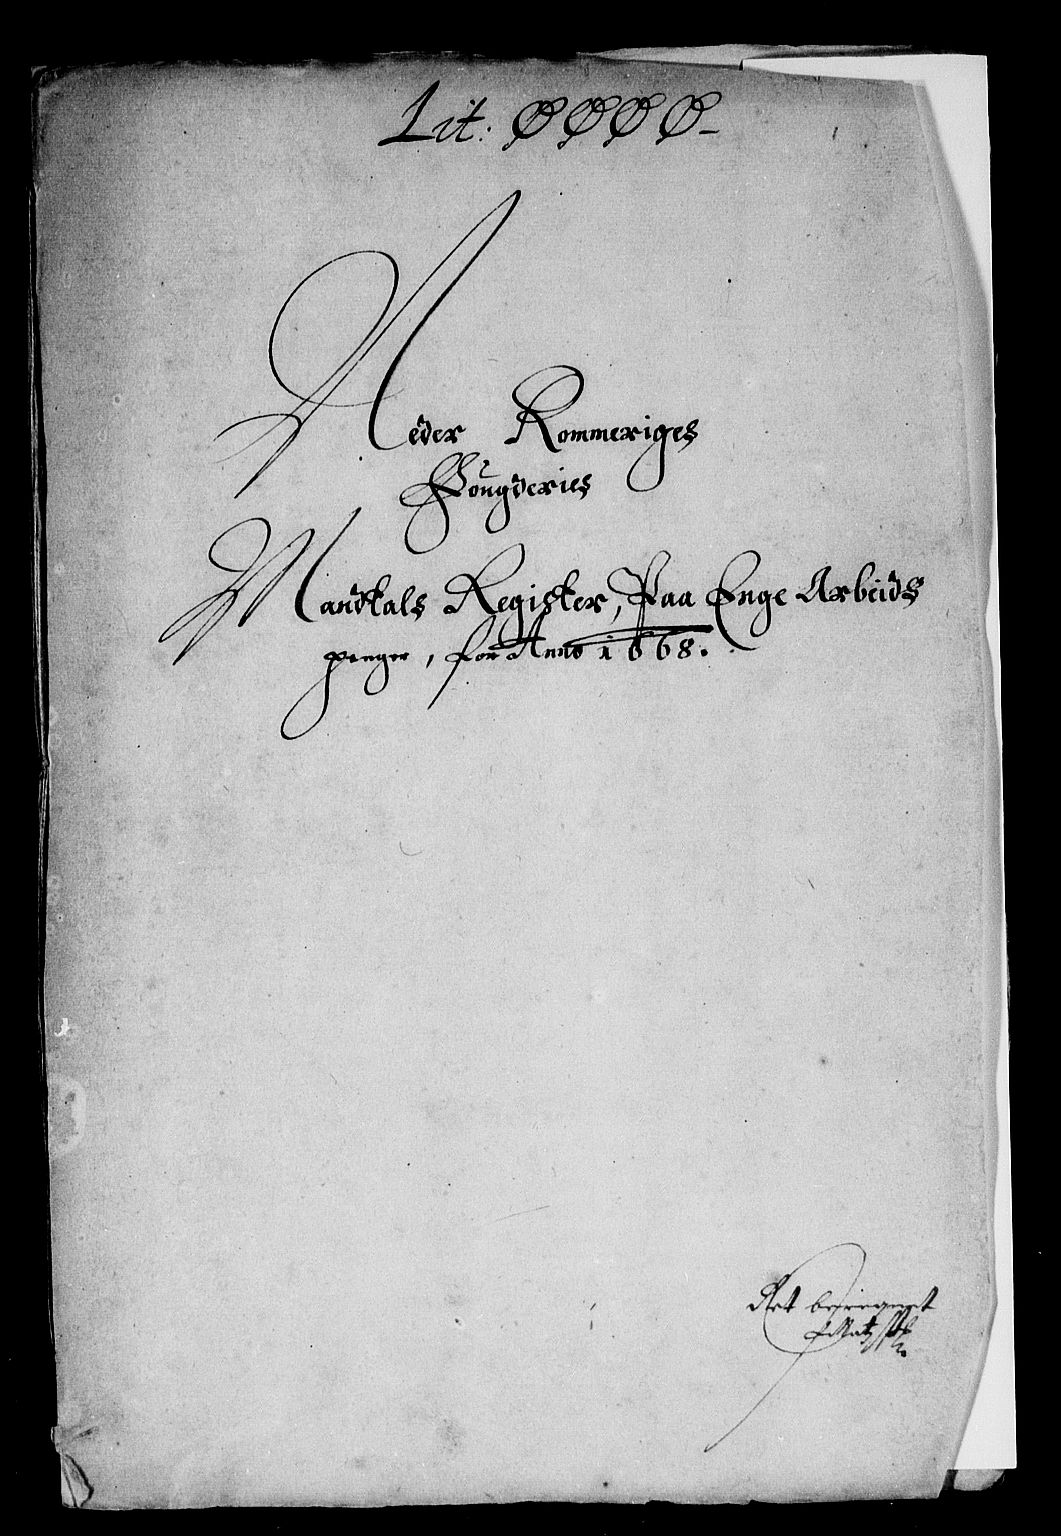 Lit: ØØØØ
Neder Rommeriges
Fougderies
Mandtals Register, Paa Enge Arbeids
penger, for Anno 1668.
Ret